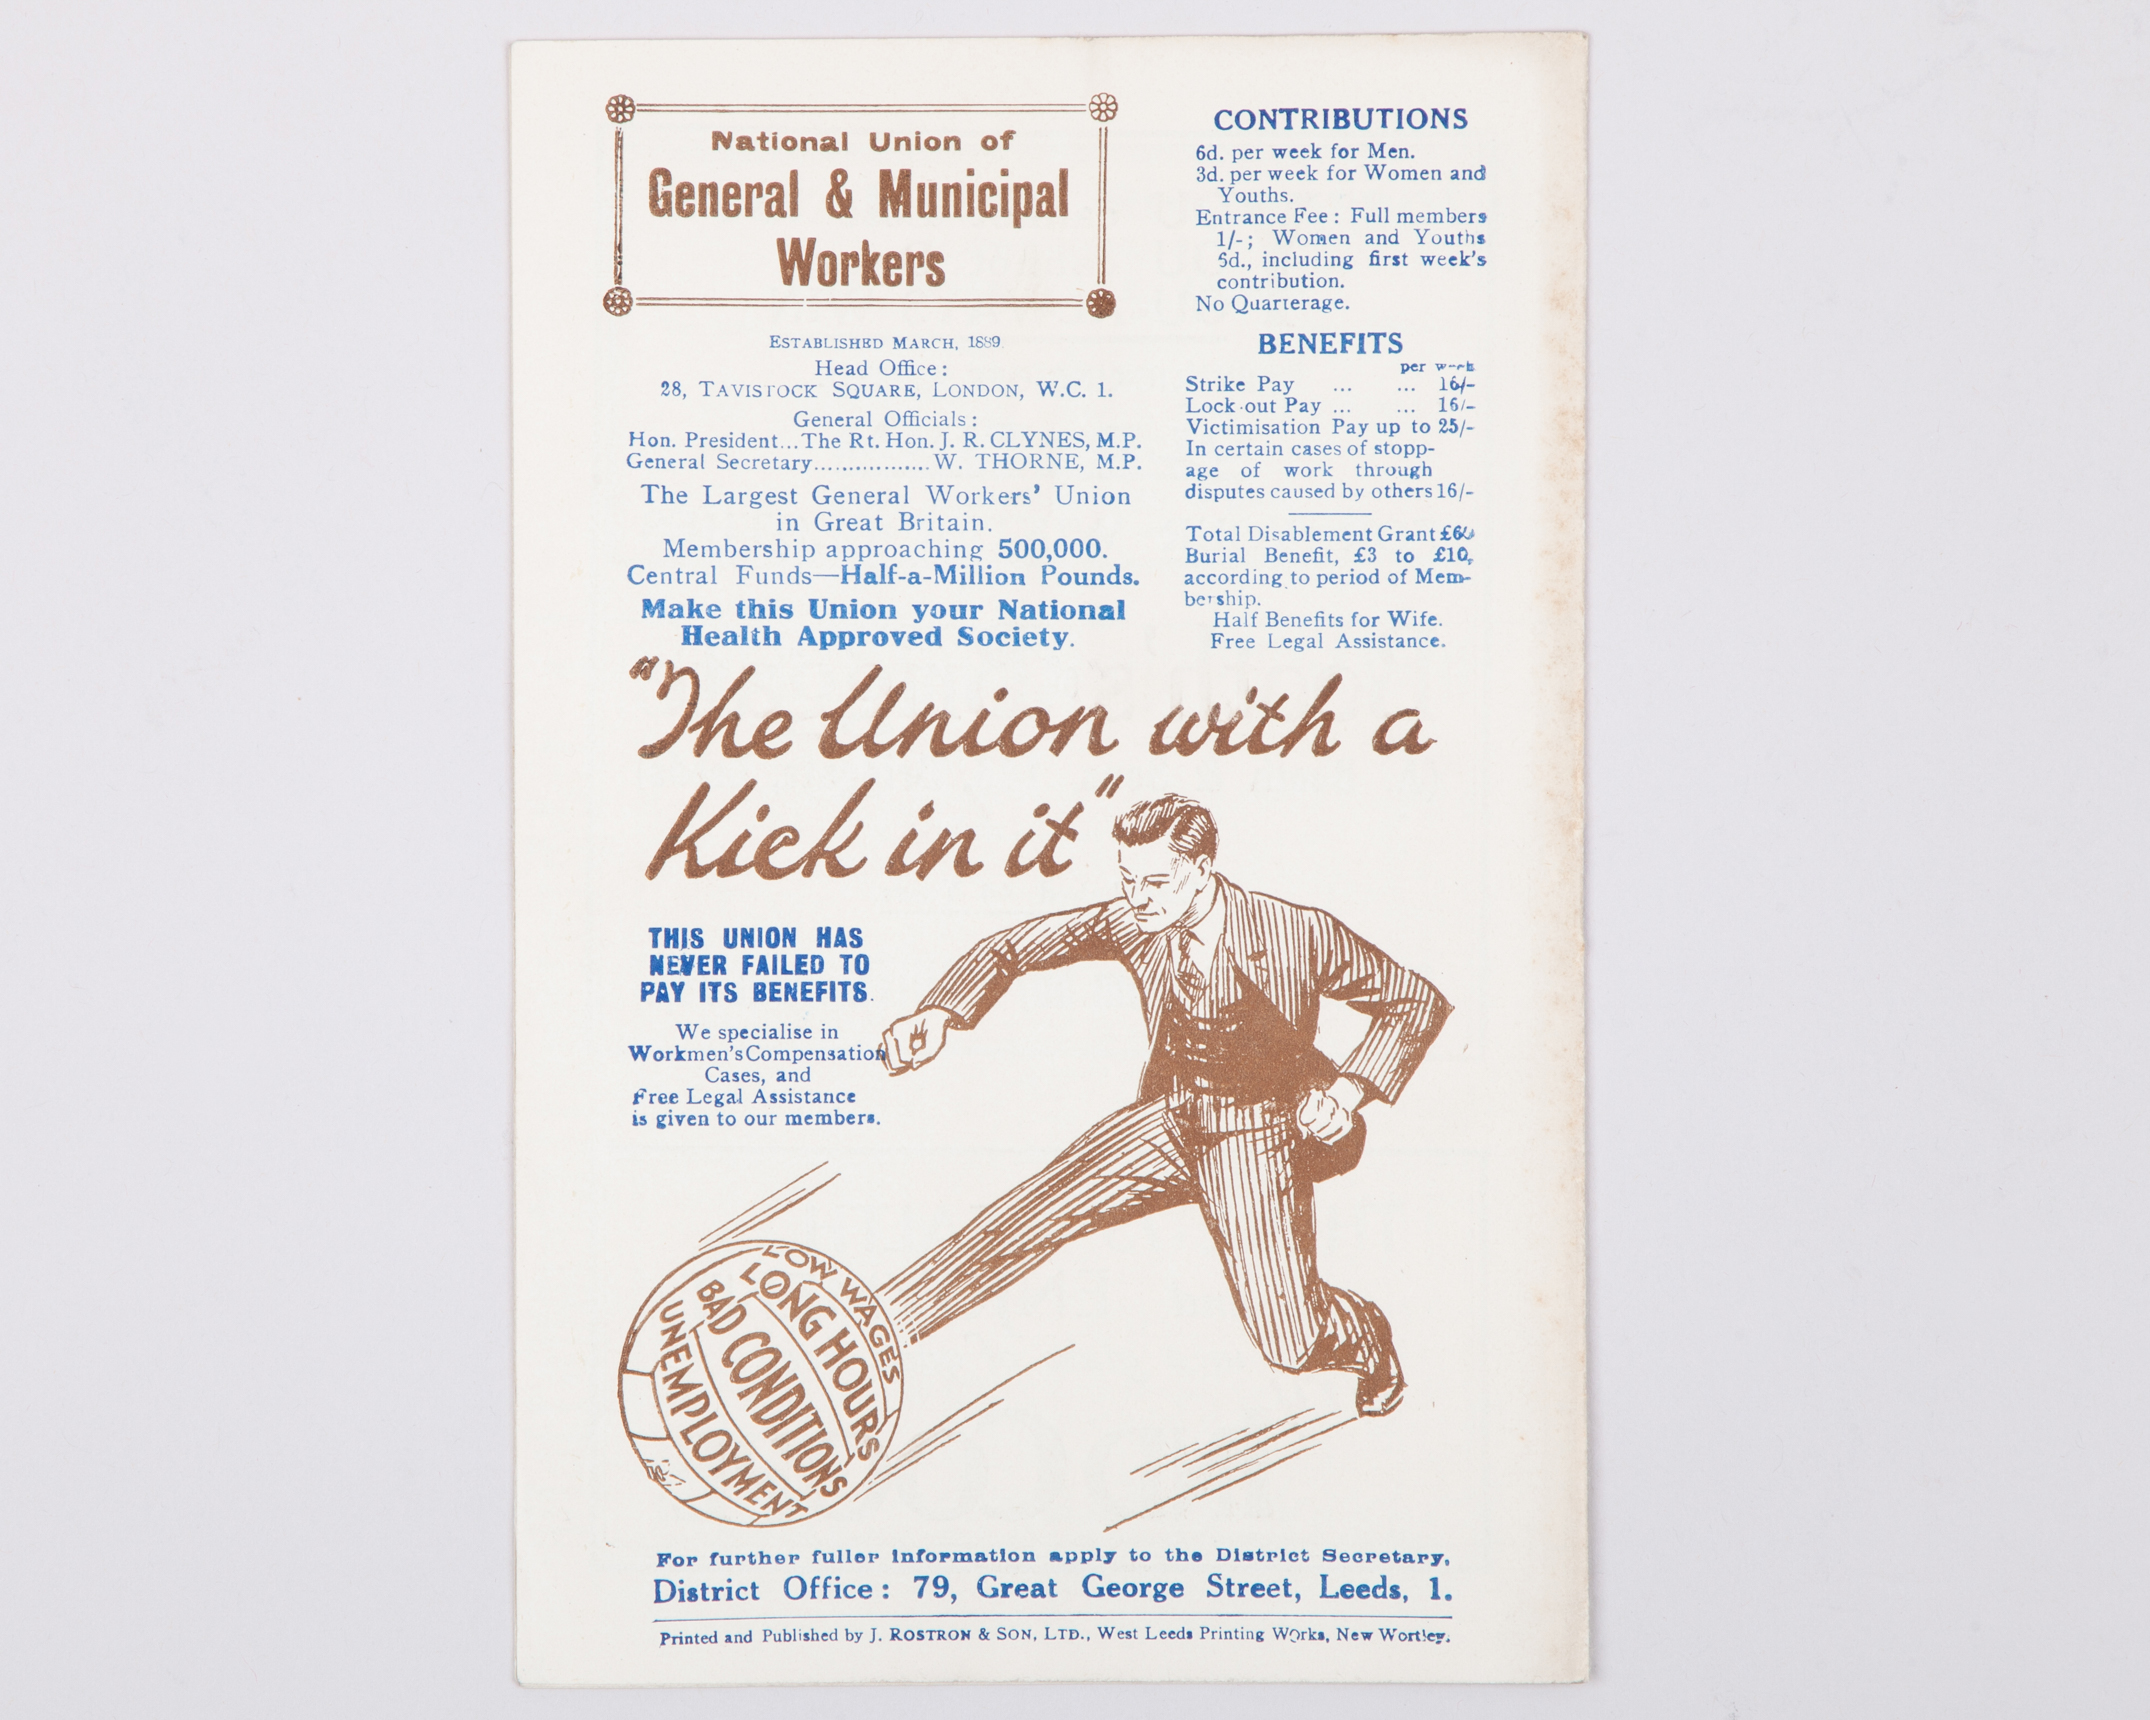 National Union of
General & Municipal
Workers
ESTABLISHED MARCH, 1889.
Head Office:
28, TAVISTOCK SQUARE, LONDON, W.C. 1.
General Officials:
Hon. President...The Rt. Hon. J. R. CLYNES, M.P.
General Secretary.................W. THORNE, M.P.
The Largest General Workers' Union
in Great Britain.
Membership approaching 500,000.
Central Funds—Half-a-Million Pounds.
Make this Union your National
Health Approved Society.
CONTRIBUTIONS
6d. per week for Men.
3d. per week for Women and
Youths.
Entrance Fee: Full members
1/-; Women and Youths
6d., including first week's
contribution.
No Quarterage.
BENEFITS
per week
Strike Pay ... ... 16/-
Lock-out Pay ... ... 16/-
Victimisation Pay up to 25/-
In certain cases of stopp-
age of work through
disputes caused by others 16/-
Total Disablement Grant
Burial Benefit, £3 to £10,
according to period of Mem-
bership.
Half Benefits for Wife.
Free Legal Assistance.
"The Union with a
Kick in it"
THIS UNION HAS
NEVER FAILED TO
PAY ITS BENEFITS.
We specialise in
Workmen's Compensation
Cases, and
Free Legal Assistance
is given to our members.
LOW WAGES
LONG HOURS
BAD CONDITIONS
UNEMPLOYMENT
For further fuller information apply to the District Secretary,
District Office: 79, Great George Street, Leeds, 1.
Printed and Published by J. ROSTRON & SON, LTD., West Leeds Printing Works, New Wortley.